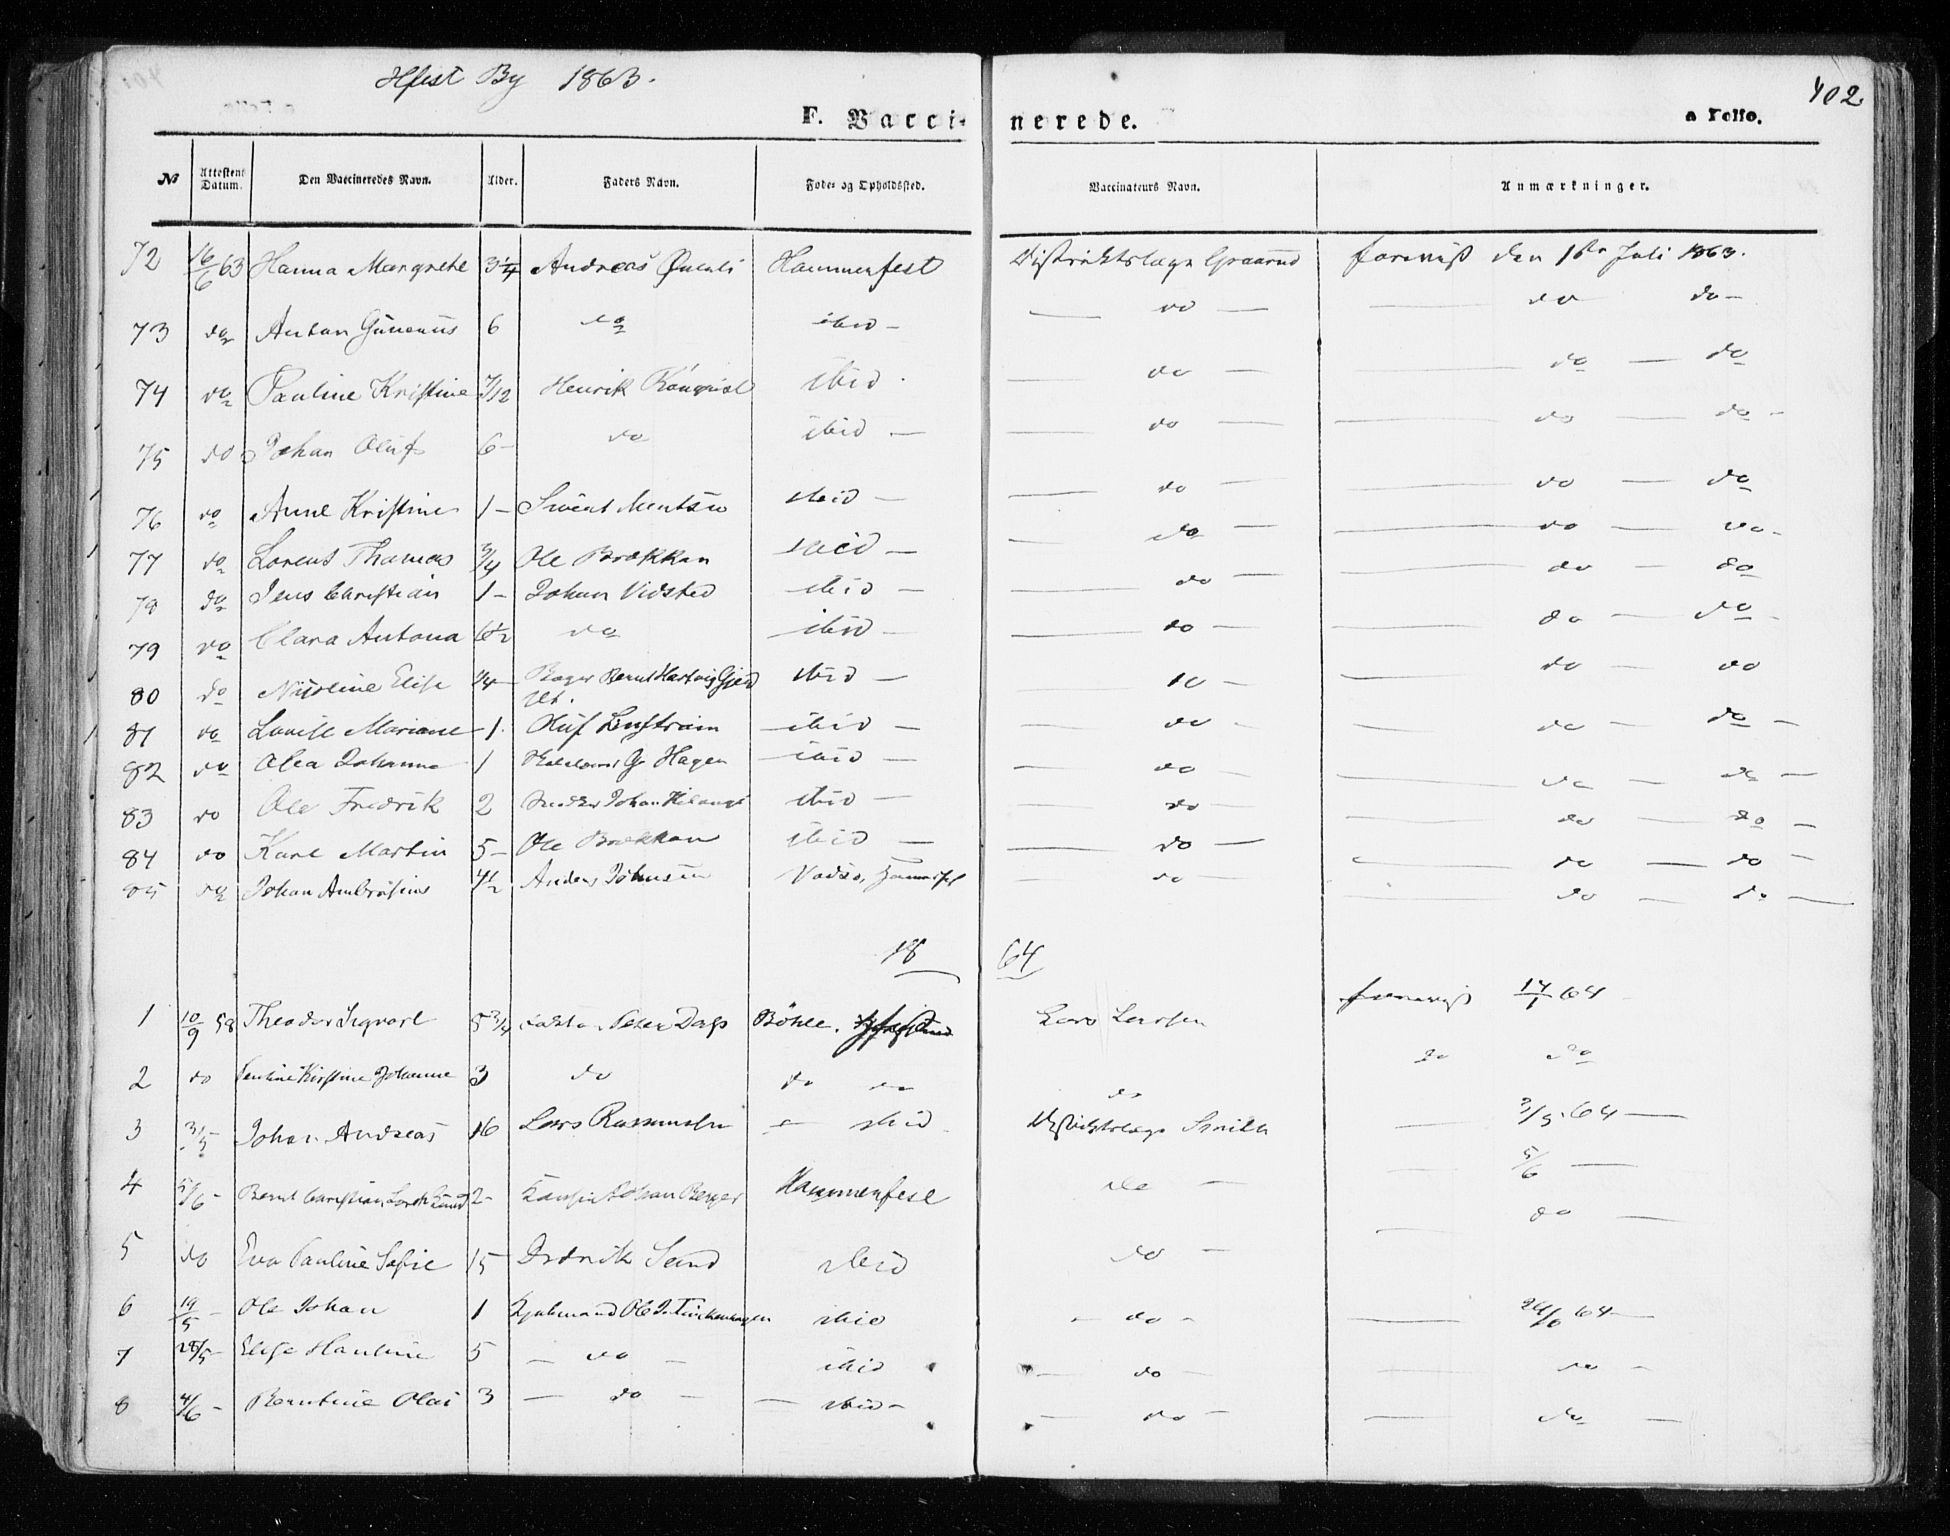 Hfest By 1863.
402
F. Vacci- nerede.
a Folio.
No Attestens Datum. Den Vaccineredes Navn. Alder. Faders Navn. Fode- og Opholdssted. Vaccinateurs Navn. Anmærkninger.
72 16/6 63 Hanna Margrethe 3 1/4 Andreas Hammerfest Distriktslæge Graarud forevist den 1ste Juli 1863.
73 do Anton 6 do ibid — do — — do do —
74 do Pauline Kristine 7/12 Henrik ibid. — do — — do — do
75 do Johan Oluf 6 — do ibid — — do — — do — do —
76 do Anne Kristine 1 — ibid — — do — — do — do
77 do Lorents Thomas 3/4 Ole Brekken ibid — — do — — do — do —
78 do Jens Christian 1 — Johan Vidsted ibid — — do — — do — do
79 do Clara Antona 6 1/2 do ibid — — do — — do — do
80 do Nicoline Elise 1/4 Bager Bernt Hartvig ibid — do — — do — do
81 do Louise Mariane 1 Oluf ibid — — do — — do — do —
82 do Olea Johanna 1 G. Hagen ibid — — do — — do — do —
83 do Ole Fredrik 2 Johan ibid — — do — — do — do —
84 do Karl Martin 5 — Ole Brekken ibid — — do — — do — do —
85 do Johan Ambrosius 4 1/2 Anders Johnsen Vadsø, Hammerfest — do — — do — do —
18 64
1 10/9 58 Theodor Ingvart 5 3/4 Peter Dass Böhle. Lars Larsen forevist 14/1 64
2 do Pauline Kirstine Johanne 3 do do do do do do
3 3/5 Johan Andreas 16 Lars Rasmussen — ibid Distriktslæge Smith — 3/5. 64 —
4 5/6 — Bernt Christian 2 — Johan Berger Hammerfest do — — 5/6 —
5 do Eva Pauline Sofie 15 Fredrik Sand ibid do — — do —
6 19/5 — Ole Johan 1 Kjøbmand Ole J. Finckenhagen ibid — do — — 24/6 64 —
7 28/5 — Elise Hauline 5 — do — ibid — do — — do —
8 4/6 — Berntine Olai 3 — do — — ibid — — do — — do —